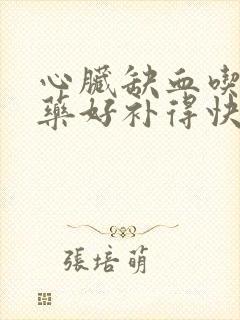 心臟缺血喫
藥好补得快
張培萌